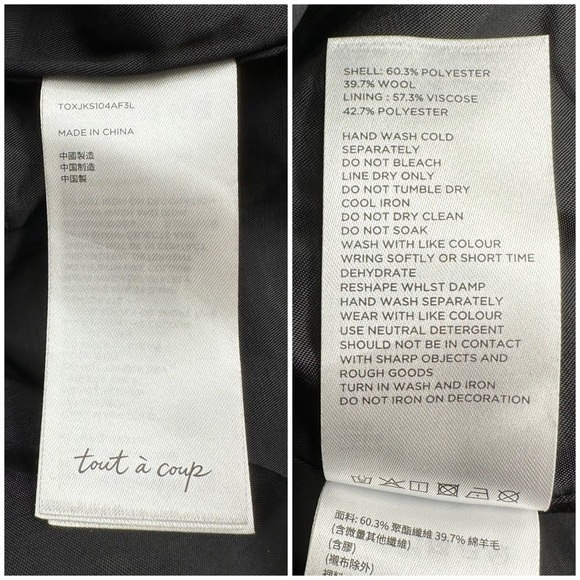 TOXJKS104AF3L
MADE IN CHINA
中國製造
中国制造
中国製
tout à coup
SHELL: 60.3% POLYESTER
39.7% WOOL
LINING : 57.3% VISCOSE
42.7% POLYESTER
HAND WASH COLD
SEPARATELY
DO NOT BLEACH
LINE DRY ONLY
DO NOT TUMBLE DRY
COOL IRON
DO NOT DRY CLEAN
DO NOT SOAK
WASH WITH LIKE COLOUR
WRING SOFTLY OR SHORT TIME
DEHYDRATE
RESHAPE WHLST DAMP
HAND WASH SEPARATELY
WEAR WITH LIKE COLOUR
USE NEUTRAL DETERGENT
SHOULD NOT BE IN CONTACT
WITH SHARP OBJECTS AND
ROUGH GOODS
TURN IN WASH AND IRON
DO NOT IRON ON DECORATION
面料: 60.3% 聚酯纖維 39.7% 綿羊毛
(含微量其他纖維)
(含膠)
(襯布除外)
裡料